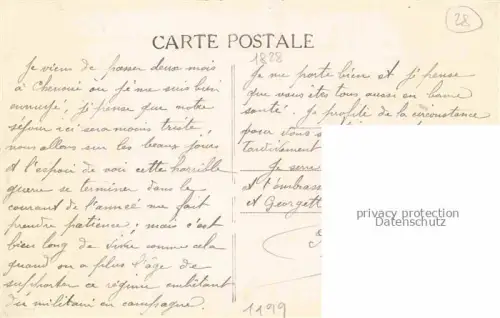 28
CARTE POSTALE
1828
Je viens de passer deux mois
à où je me suis bien
ennuyé, j'pense que notre
séjour ici sera moins triste,
nous allons sur les beaux jours
et l'espoir de voir cette horrible
guerre se terminer dans le
courant de l'année me fait
prendre patience, mais c'est
bien long de vivre comme cela
quand on a plus l'âge de
supporter ce régime embêtant
du militaire en campagne.
Je me porte bien et j'pense
que vous êtes tous aussi en bonne
santé. Je profite de la circonstance
pour vous
tardivement
Je
et t'embrass
et Georgett
privacy protection
Datenschutz
1199